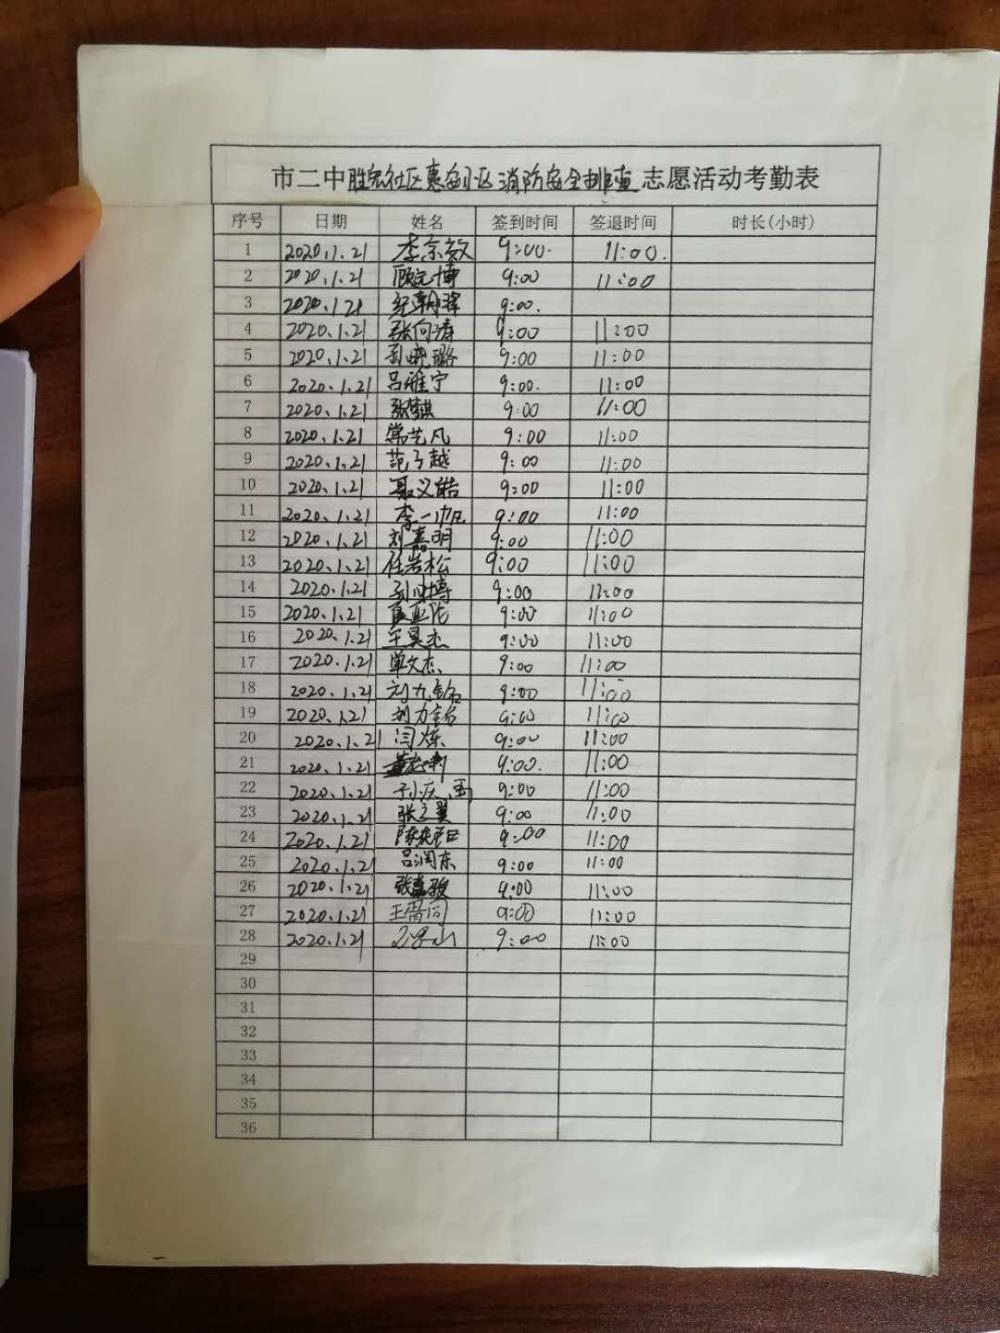 市二中胜宏社区惠安小区消防安全排查志愿活动考勤表
序号 日期 姓名 签到时间 签退时间 时长(小时)
1 2020.1.21 李京效 9:00. 11:00.
2 2020.1.21 顾志博 9:00 11:00
3 2020.1.21 纪朝晖 9:00.
4 2020.1.21 张向涛 9:00 11:00
5 2020.1.21 孙晓璐 9:00 11:00
6 2020.1.21 吕雅宁 9:00. 11:00
7 2020.1.21 张梦麒 9:00 11:00
8 2020.1.21 常艺凡 9:00 11:00
9 2020.1.21 范子越 9:00 11:00
10 2020.1.21 聂义皓 9:00 11:00
11 2020.1.21 李一帆 9:00 11:00
12 2020.1.21 刘嘉明 9:00 11:00
13 2020.1.21 任岩松 9:00 11:00
14 2020.1.21 9:00 11:00
15 2020.1.21 9:00 11:00
16 2020.1.21 王昊杰 9:00 11:00
17 2020.1.21 单文杰 9:00 11:00
18 2020.1.21 9:00 11:00
19 2020.1.21 刘力铭 9:00 11:00
20 2020.1.21 闫炼 9:00 11:00
21 2020.1.21 9:00. 11:00
22 2020.1.21 9:00 11:00
23 2020.1.21 张之翼 9:00 11:00
24 2020.1.21 9:00 11:00
25 2020.1.21 吕润东 9:00 11:00
26 2020.1.21 张嘉骏 9:00 11:00
27 2020.1.21 9:00 11:00
28 2020.1.21 9:00 11:00
29
30
31
32
33
34
35
36